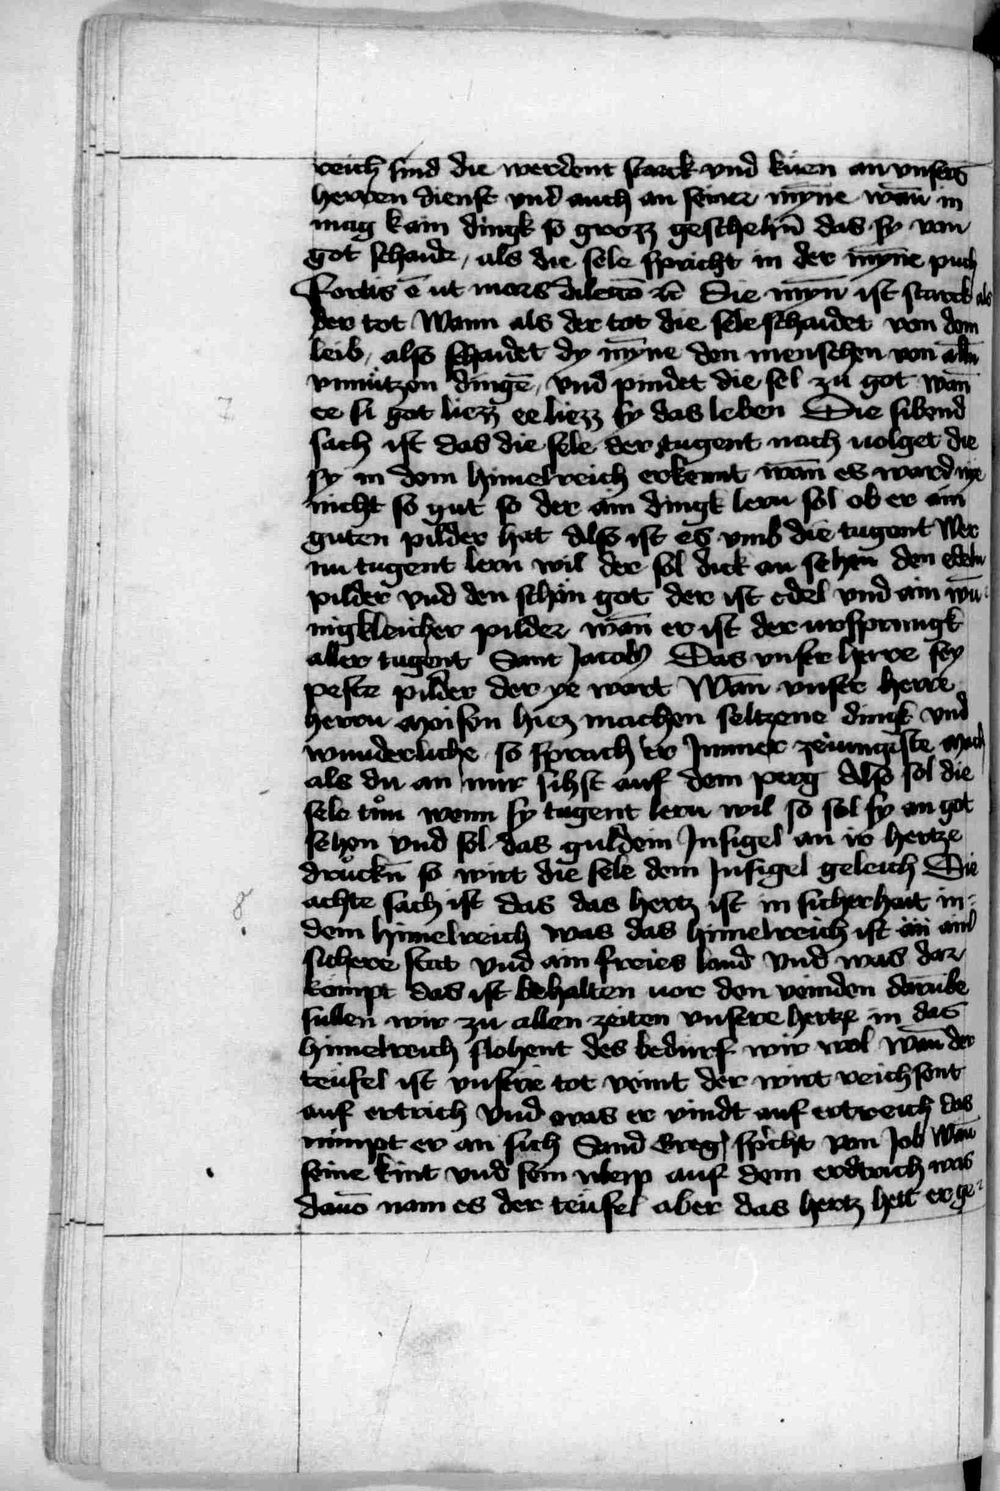 reich sind die werdent starck vnd küen an vnsers
herren dienst vnd auch an seiner mÿne wañ in
mag kain dingk so grozz geschehñ das sy von
got schaide / als die sele spricht in der mÿne puch
Fortis ē ut mors dilectō ꝛc̄ Die mÿn ist starck als
der tot Wann als der tot die sele schaidet von dem
leib / also schaidet dy mÿne den menschen von alln̄
vnnützen dingē / vnd pindet die sel zu got wañ
ee si got liezz ee liezz sy das leben Die sibend
7
sach ist das die sele der tugent nach uolget die
sy in dem himelreich erkennt wañ es ward nye
nicht so gut so der ain dingk lern sol ob er ain
guten pilder hat Also ist es vmb die tugent Wer
nu tugent lern wil der sol dick an sehen̄ den edeln
pilder vnd den schön got der ist edel vnd ain wū-
nigkleicher pilder wañ er ist der ursprungk
aller tugent Sant Jacob Das vnser herre sey
peste pilder der ye wart Wañ vnser herre
herrn Moisen hiez machen seltzene dingk vnd
wunderliche so sprach er Immer zeiungiste Mach
als du an mir sihst auf dem perg Also sol die
sele tůn wenn sy tugent lern wil so sol sy an got
sehen vnd sol das guldein Insigel an ir hertze
drůckñ so wirt die sele dem Insigel geleich Die
8
achte sach ist das das hertz ist in sicherhait in
dem himelreich was das himelreich ist ain
sichere stat vnd ain freies land vnd was dar
kompt das ist behalten uor den veinden darūbe
sullen wir zu allen zeiten vnsere hertze in das
himelreich flohent des bedurf wir wol wañ der
teufel ist vnsere tot veint der wirt reichsent
auf ertrich vnd was er vindt auf ertreich das
nimpt er an sich Sand Greg spricht von Job Wañ
seine kint vnd sein weip auf dem erdtrich was
dauō nam es der teufel aber das hertz hett er ge-